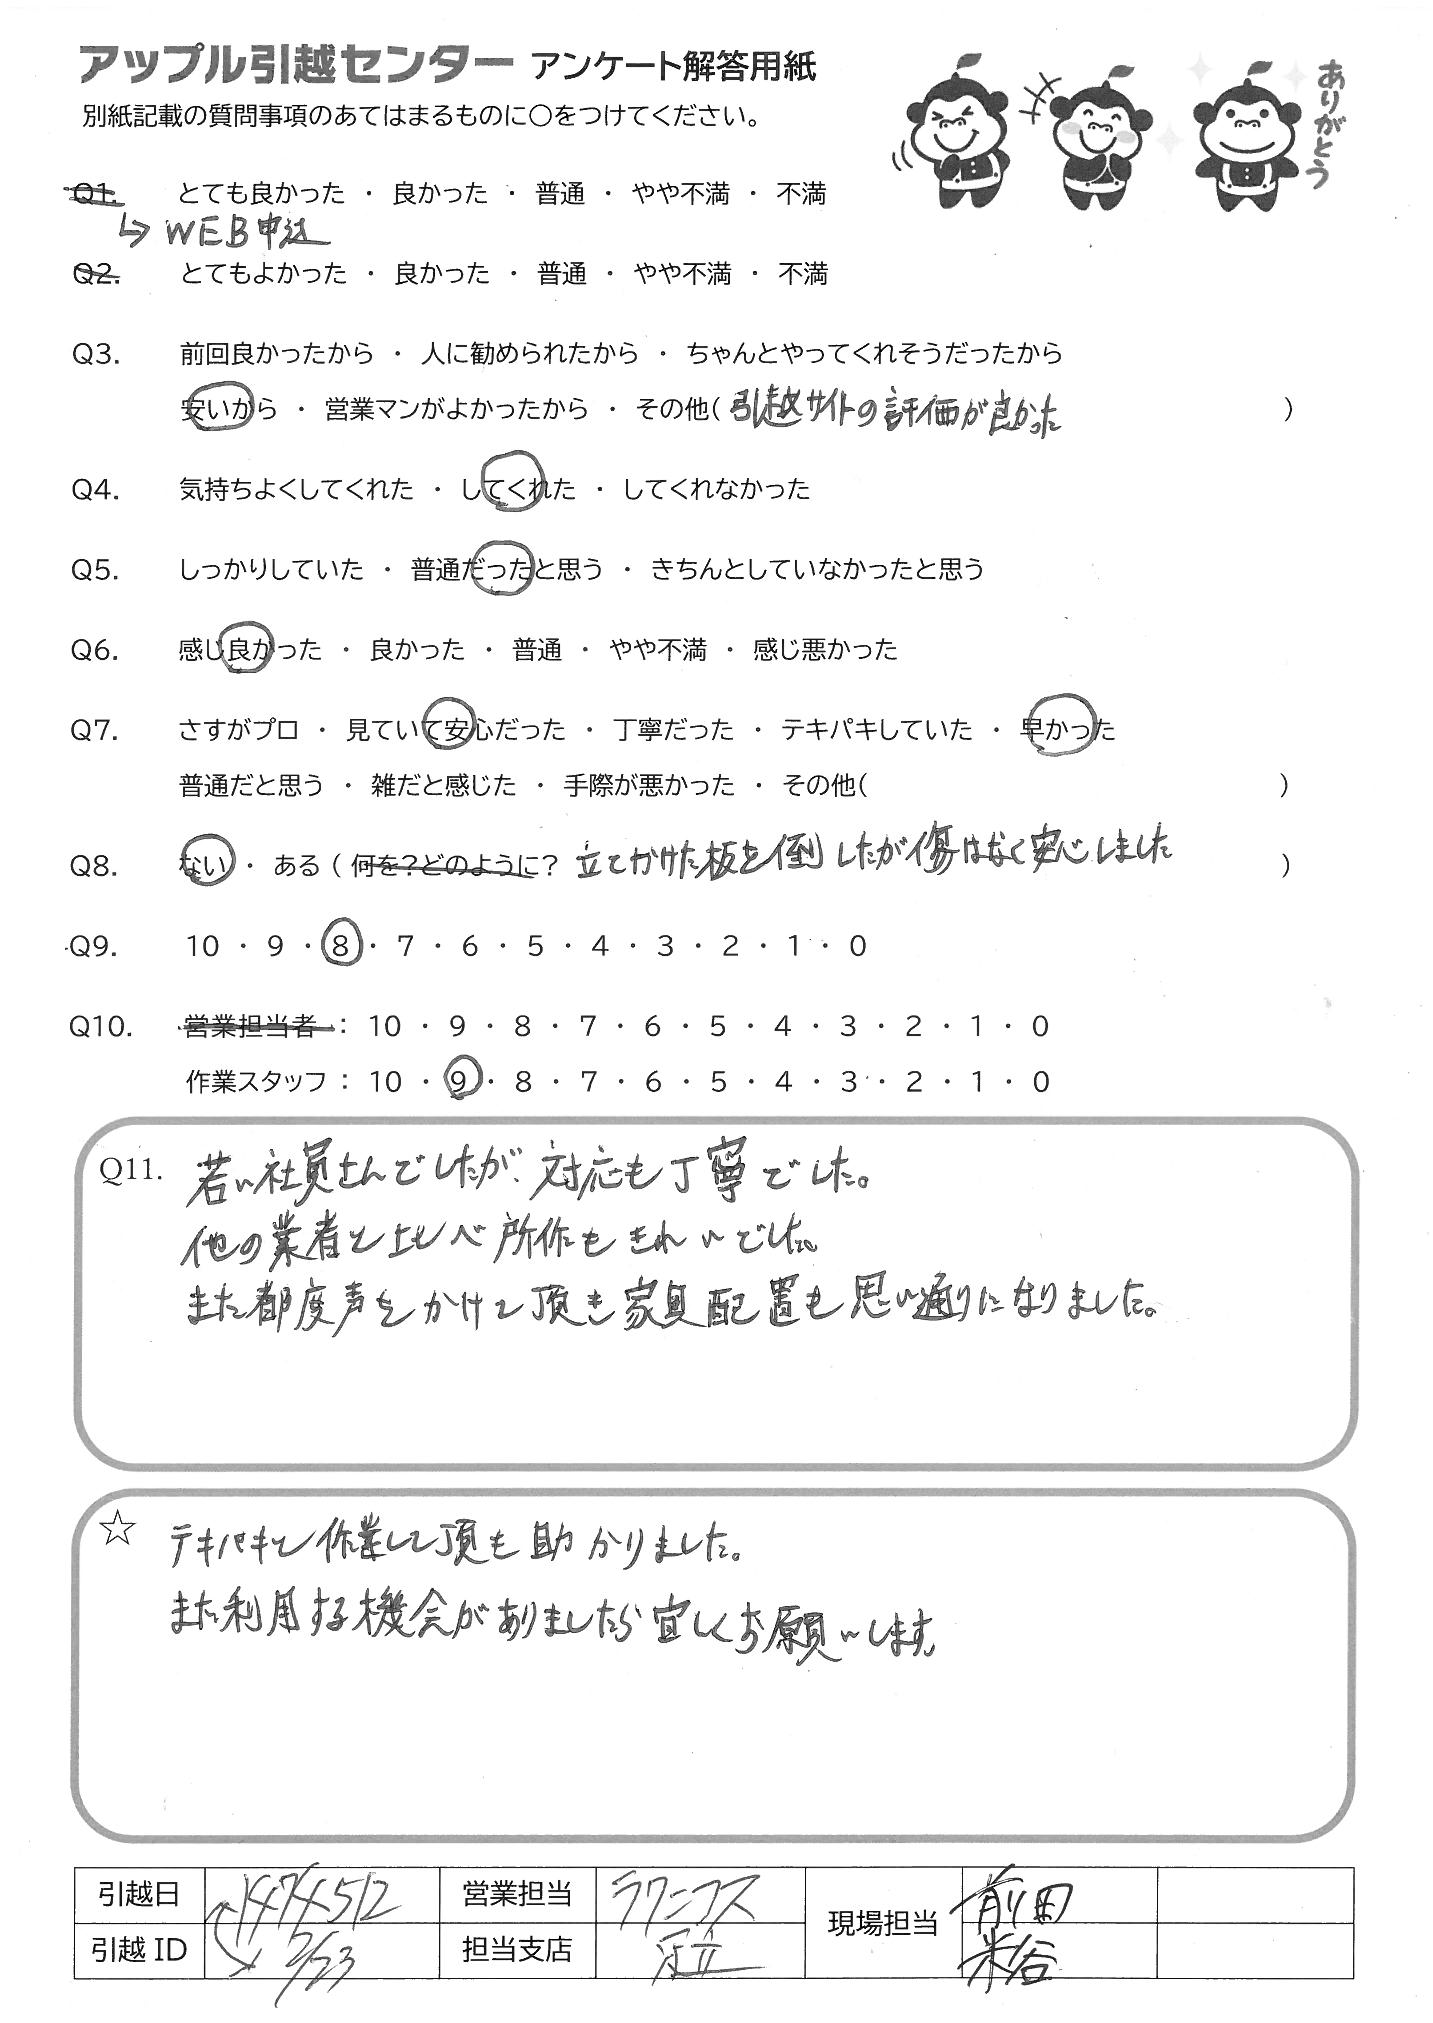 アップル引越センター アンケート解答用紙
別紙記載の質問事項のあてはまるものに○をつけてください。
ありがとう
Q1. とても良かった ・ 良かった ・ 普通 ・ やや不満 ・ 不満
↳ WEB申込
Q2. とてもよかった ・ 良かった ・ 普通 ・ やや不満 ・ 不満
Q3. 前回良かったから ・ 人に勧められたから ・ ちゃんとやってくれそうだったから
安いから ・ 営業マンがよかったから ・ その他( 引越サイトの評価が良かった )
Q4. 気持ちよくしてくれた ・ してくれた ・ してくれなかった
Q5. しっかりしていた ・ 普通だったと思う ・ きちんとしていなかったと思う
Q6. 感じ良かった ・ 良かった ・ 普通 ・ やや不満 ・ 感じ悪かった
Q7. さすがプロ ・ 見ていて安心だった ・ 丁寧だった ・ テキパキしていた ・ 早かった
普通だと思う ・ 雑だと感じた ・ 手際が悪かった ・ その他( )
Q8. ない ・ ある ( 何を?どのように? 立てかけた板を倒したが傷はなく安心しました )
Q9. 10 ・ 9 ・ 8 ・ 7 ・ 6 ・ 5 ・ 4 ・ 3 ・ 2 ・ 1 ・ 0
Q10. 営業担当者 : 10 ・ 9 ・ 8 ・ 7 ・ 6 ・ 5 ・ 4 ・ 3 ・ 2 ・ 1 ・ 0
作業スタッフ : 10 ・ 9 ・ 8 ・ 7 ・ 6 ・ 5 ・ 4 ・ 3 ・ 2 ・ 1 ・ 0
Q11. 若い社員さんでしたが、対応も丁寧でした。
他の業者と比べ所作もきれいでした。
また都度声をかけて頂き家具配置も思い通りになりました。
☆ テキパキと作業して頂き助かりました。
また利用する機会がありましたら宜しくお願いします。
引越日 1474512 営業担当 ラクニコス 現場担当 前田
引越 ID 2/23 担当支店 足立 米谷